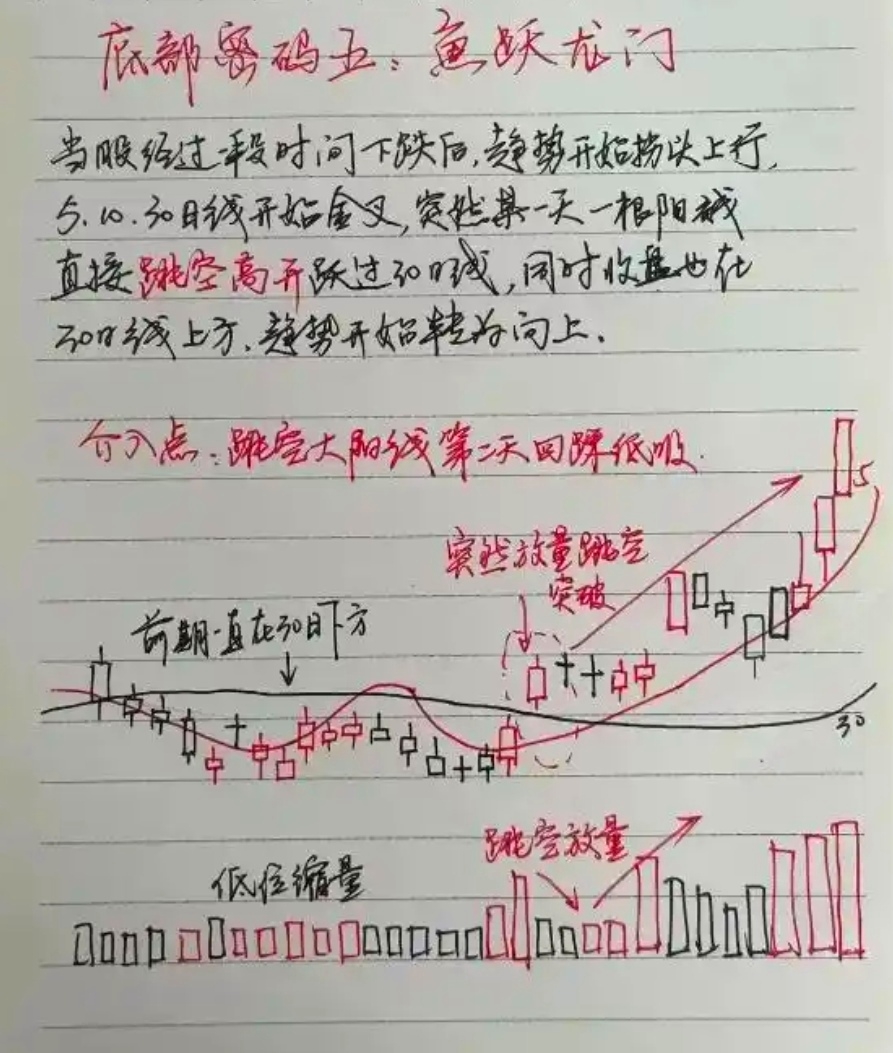 底部密码五：鱼跃龙门
当股经过一段时间下跌后，趋势开始拐头上行，
5.10.30日线开始金叉，突然某一天一根阳线
直接跳空高开跃过30日线，同时收盘也在
30日线上方，趋势开始转为向上。
介入点：跳空大阳线第二天回踩低吸.
5
突然放量跳空
突破
前期一直在30日下方
30
跳空放量
低位缩量